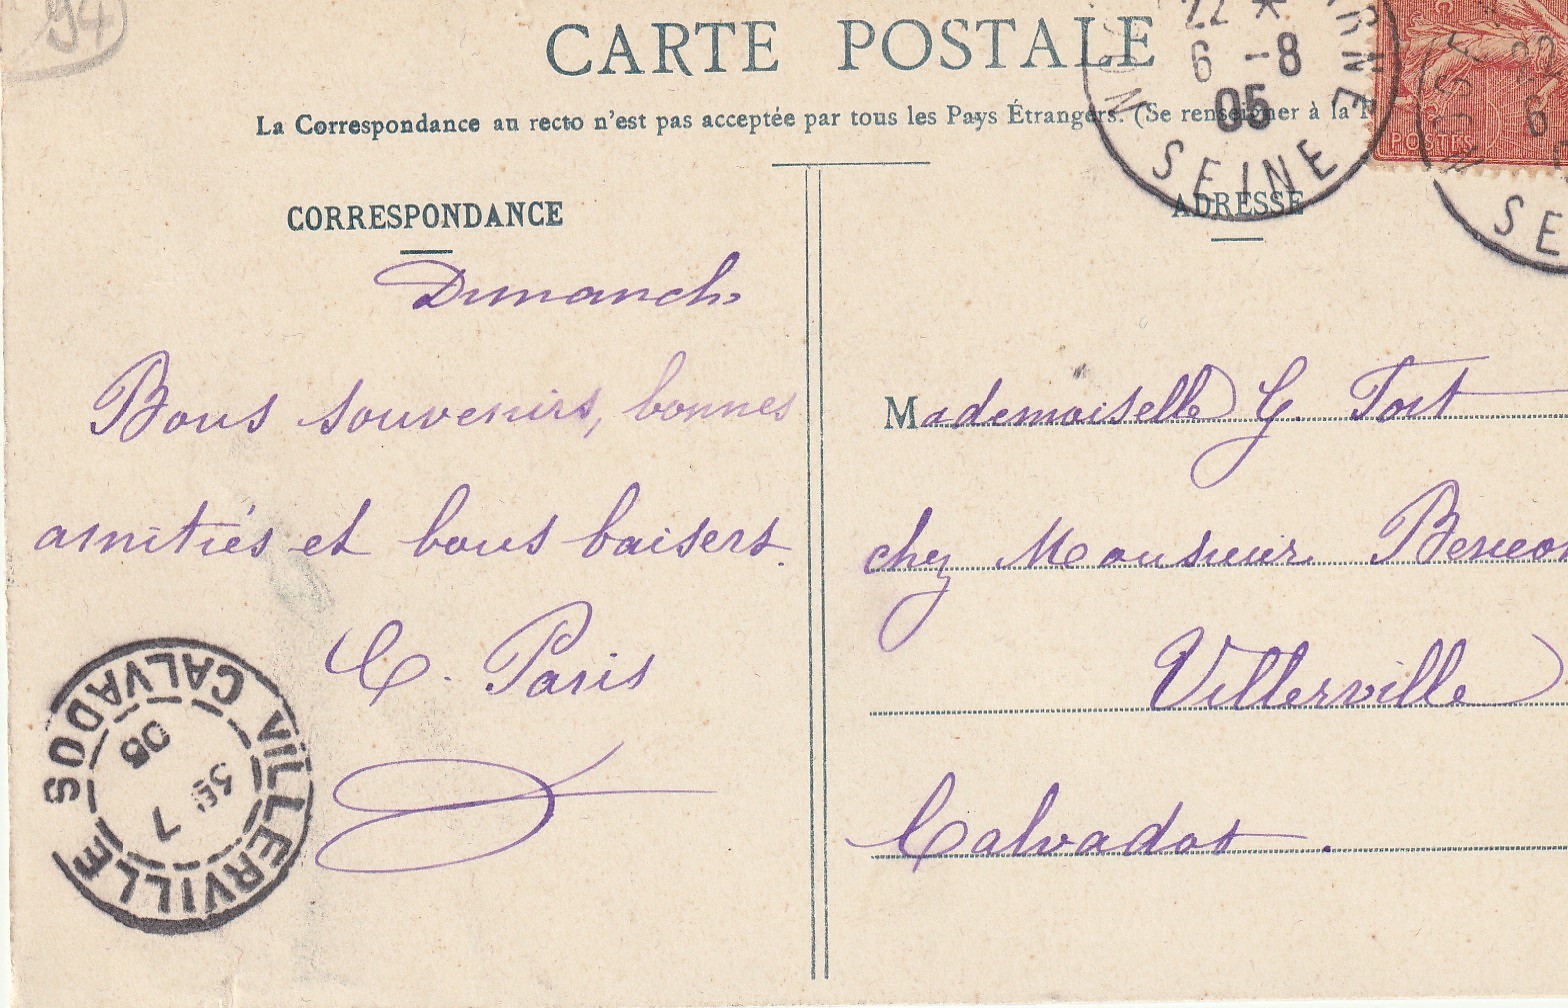 94
CARTE POSTALE
La Correspondance au recto n'est pas acceptée par tous les Pays Étrangers. (Se renseigner à la
22 *
6 -8
05
SEINE
POSTES
22
6
SE
CORRESPONDANCE
ADRESSE
Dimanche
Bons souvenirs, bonnes
amitiés et bons baisers.
C. Paris
Mademoiselle G. Tort
chez Monsieur
Villerville
Calvados.
VILLERVILLE
CALVADOS
7
05